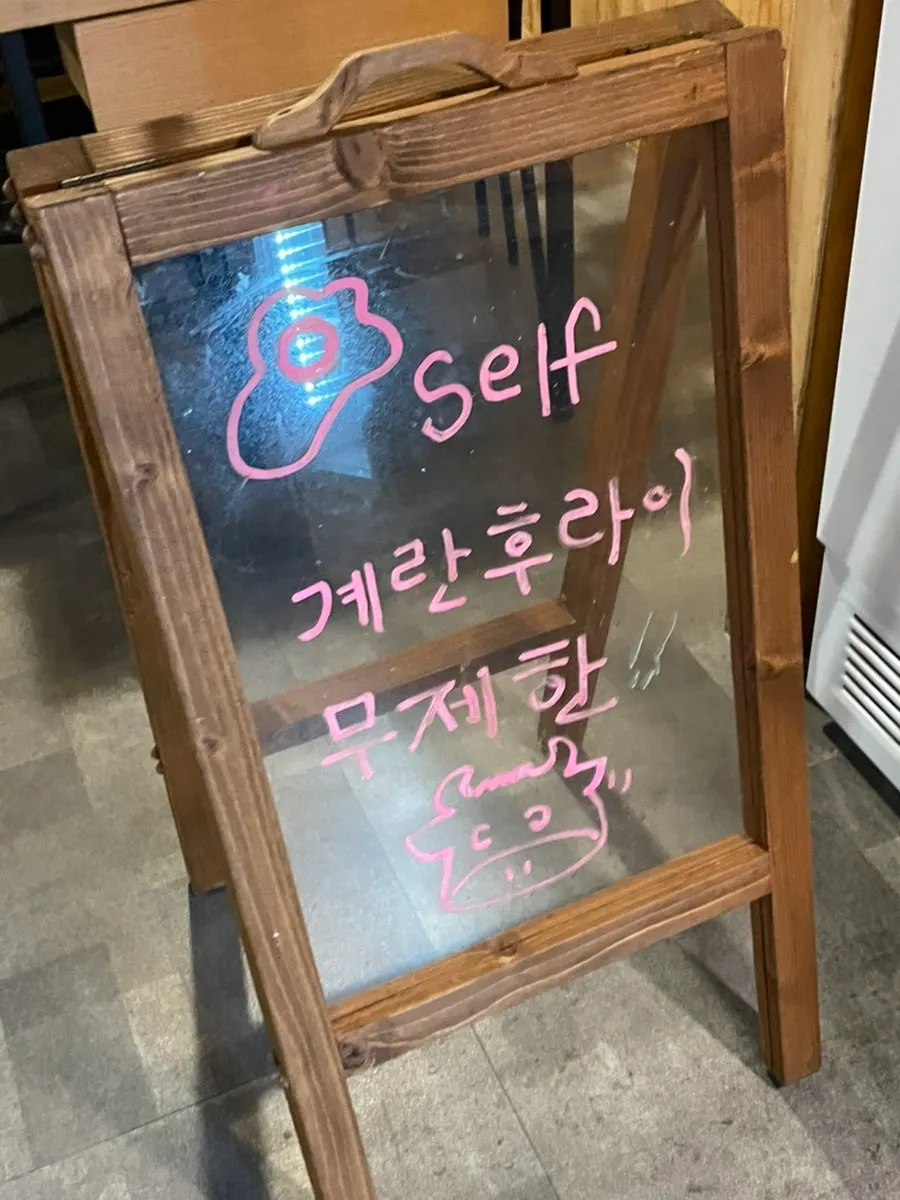 self
계란후라이
무제한